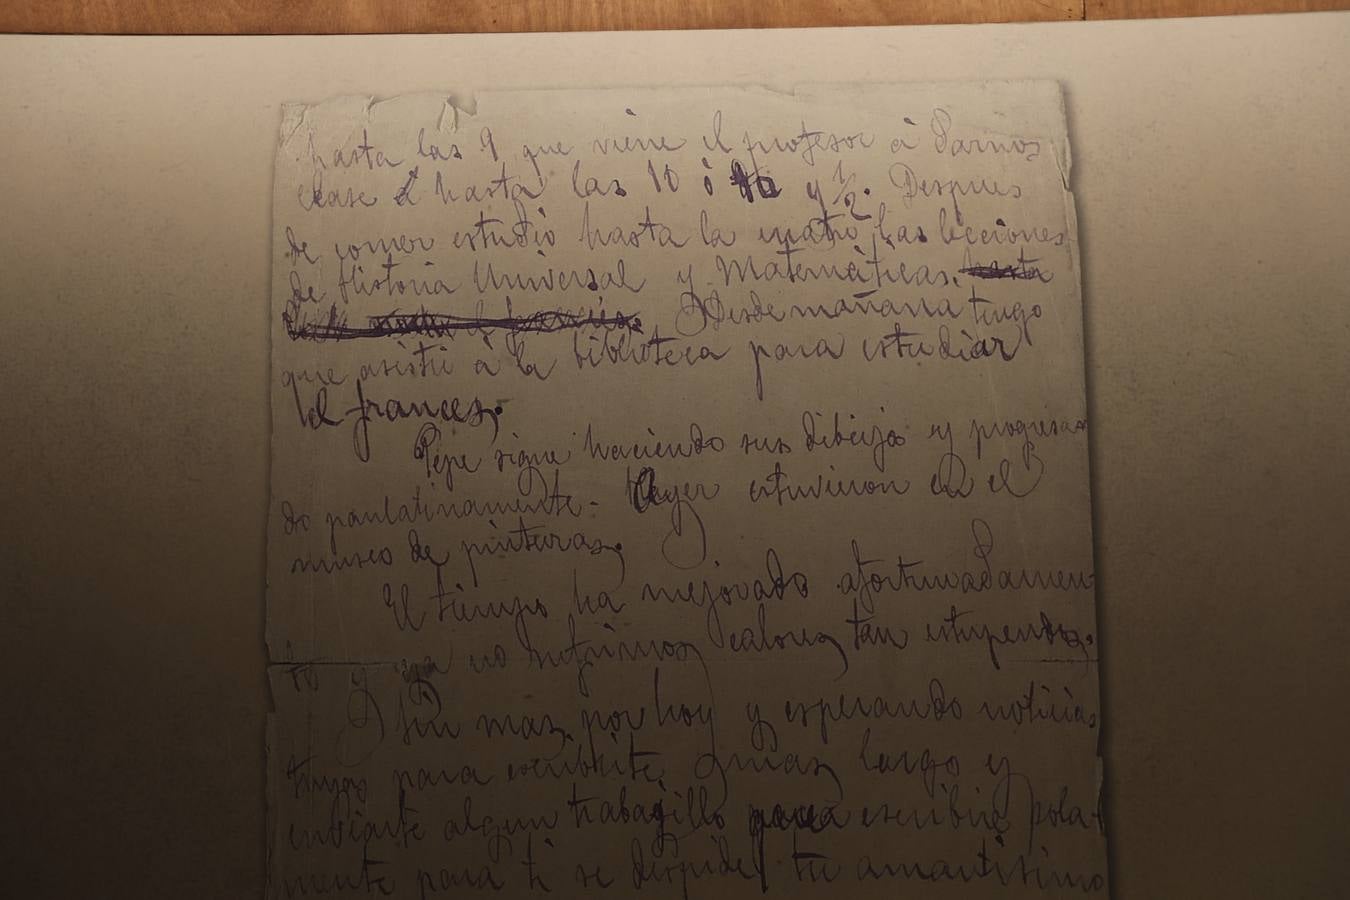 hasta las 9 que viene el profesor á darnos
clase hasta las 10 ó y 1/2. Despues
de comer estudio hasta la cuatro las lecciones
de Historia Universal y Matemáticas. hasta
Desde mañana tengo
que asistir á la biblioteca para estudiar
el frances.
Pepe sigue haciendo sus dibujos y progresan
do paulatinamente. Ayer estuvieron en el
museo de pinturas.
El tiempo ha mejorado afortunadamen
te y ya no sufrimos calores tan estupendos.
Sin mas por hoy y esperando noticias
tuyas para escribirte mas largo y
enviarte algun trabagillo para escribir sola-
mente para ti se despide tu amantisimo